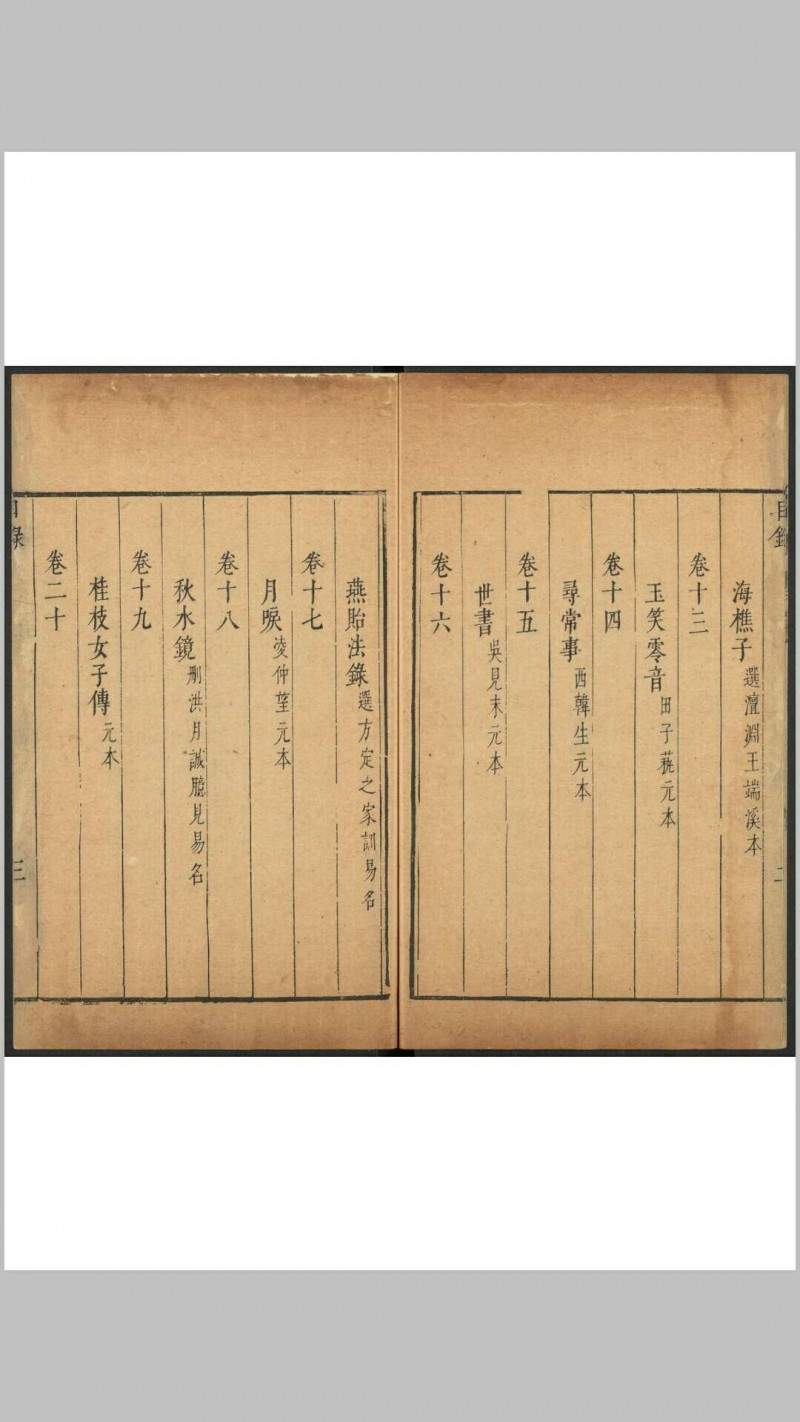 目錄
海樵子選澶淵王端溪本
卷十三
玉笑零音田子萟元本
卷十四
尋常事西韓生元本
卷十五
世書吳見末元本
卷十六
二
燕貽法錄選方定之家訓易名
卷十七
月唳凌仲望元本
卷十八
秋水鏡刪洪月誠臆見易名
卷十九
桂枝女子傳元本
卷二十
目錄
三